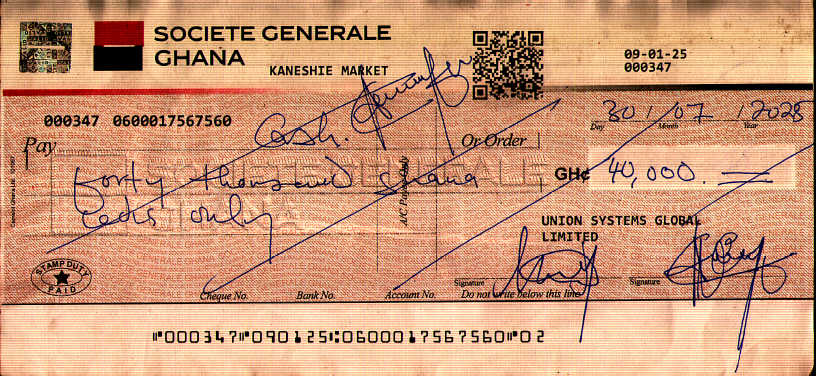 SOCIETE GENERALE
GHANA
KANESHIE MARKET
09-01-25
000347
000347 0600017567560
30 / 07 / 2025
Day Month Year
Pay
Cash.
Or Order
A/C Payee Only
forty thousand ghana
cedis only
GH¢ 40,000.
UNION SYSTEMS GLOBAL
LIMITED
STAMP DUTY
PAID
Signature
Signature
Cheque No. Bank No. Account No. Do not write below this line
⑈000347⑈090125⑆0600017567560⑈02